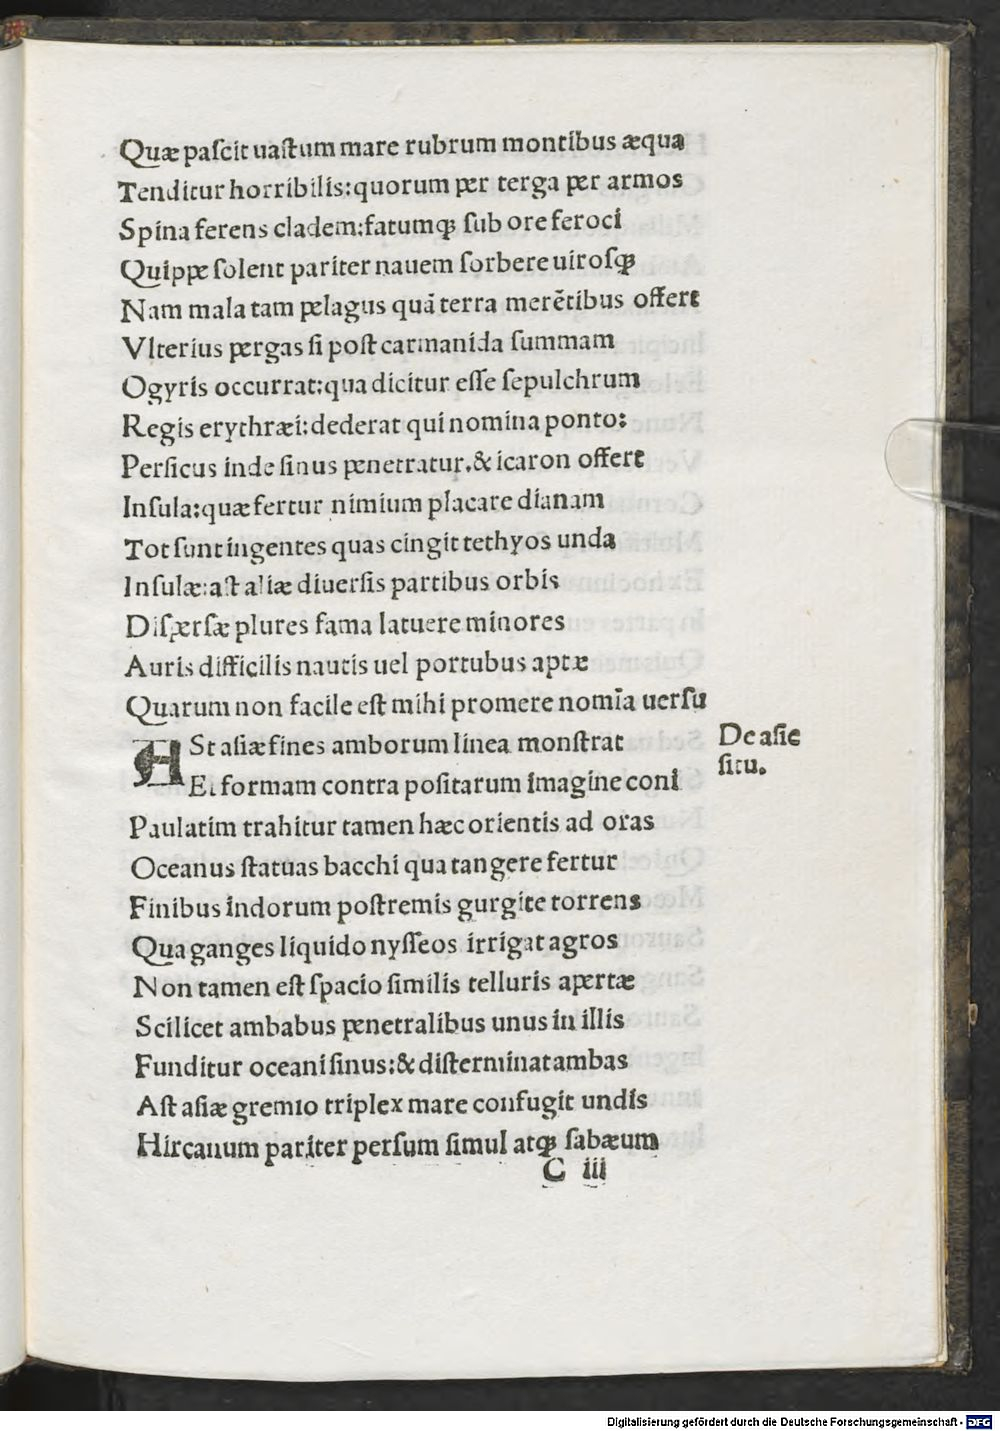 Quæ paſcit uaſtum mare rubrum montibus æqua
Tenditur horribilis:quorum per terga per armos
Spina ferens cladem:fatumꝙ ſub ore feroci
Quippe ſolent pariter nauem ſorbere uiroſꝙ
Nam mala tam pelagus quā terra merētibus offert
Vlterius pergas ſi poſt carmanida ſummam
Ogyris occurrat:qua dicitur eſſe ſepulchrum
Regis erythræi:dederat qui nomina ponto:
Perſicus inde ſinus penetratur.& icaron offert
Inſula:quæ fertur nimium placare dianam
Tot ſunt ingentes quas cingit tethyos unda
Inſulæ:aſt aliæ diuerſis partibus orbis
Diſperſæ plures fama latuere minores
Auris difficilis nautis uel portubus aptæ
Quarum non facile eſt mihi promere nomīa uerſu
ASt aſiæ fines amborum linea monſtrat
Et formam contra poſitarum imagine coni
De aſie
ſitu.
Paulatim trahitur tamen hæc orientis ad oras
Oceanus ſtatuas bacchi qua tangere fertur
Finibus indorum poſtremis gurgite torrens
Qua ganges liquido nyſſeos irrigat agros
Non tamen eſt ſpacio ſimilis telluris apertæ
Scilicet ambabus penetralibus unus in illis
Funditur oceani ſinus:& diſterminat ambas
Aſt aſiæ gremio triplex mare confugit undis
Hircanum pariter perſum ſimul atꝙ ſabæum
C iii
Digitalisierung gefördert durch die Deutsche Forschungsgemeinschaft - DFG